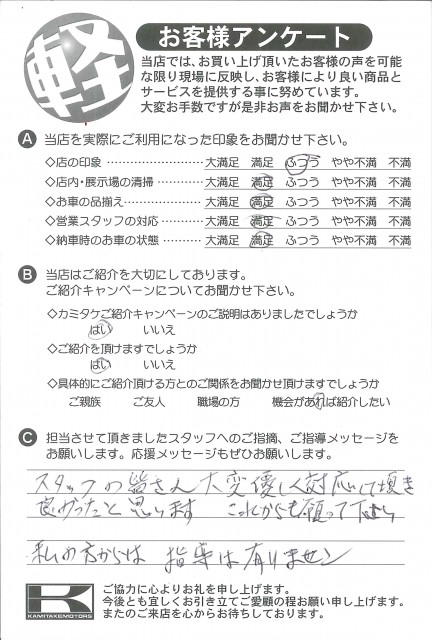 軽
お客様アンケート
当店では、お買い上げ頂いたお客様の声を可能
な限り現場に反映し、お客様により良い商品と
サービスを提供する事に努めています。
大変お手数ですが是非お声をお聞かせ下さい。
A 当店を実際にご利用になった印象をお聞かせ下さい。
◇店の印象 ………………… 大満足 満足 ふつう やや不満 不満
◇店内・展示場の清掃 ………… 大満足 満足 ふつう やや不満 不満
◇お車の品揃え ……………… 大満足 満足 ふつう やや不満 不満
◇営業スタッフの対応 ………… 大満足 満足 ふつう やや不満 不満
◇納車時のお車の状態 ………… 大満足 満足 ふつう やや不満 不満
B 当店はご紹介を大切にしております。
ご紹介キャンペーンについてお聞かせ下さい。
◇カミタケご紹介キャンペーンのご説明はありましたでしょうか
はい いいえ
◇ご紹介を頂けますでしょうか
はい いいえ
◇具体的にご紹介頂ける方とのご関係をお聞かせ頂けますでしょうか
ご親族 ご友人 職場の方 機会があれば紹介したい
C 担当させて頂きましたスタッフへのご指摘、ご指導メッセージを
お願いします。応援メッセージもぜひお願いします。
スタッフの皆さん大変優しく対応して頂き
良かったと思います これからも頑って下さい
私の方からは 指導は有りません
K
KAMITAKEMOTORS
ご協力に心よりお礼を申し上げます。
今後とも宜しくお引き立てご愛顧の程お願い申し上げます。
またのご来店を心からお待ちしております。